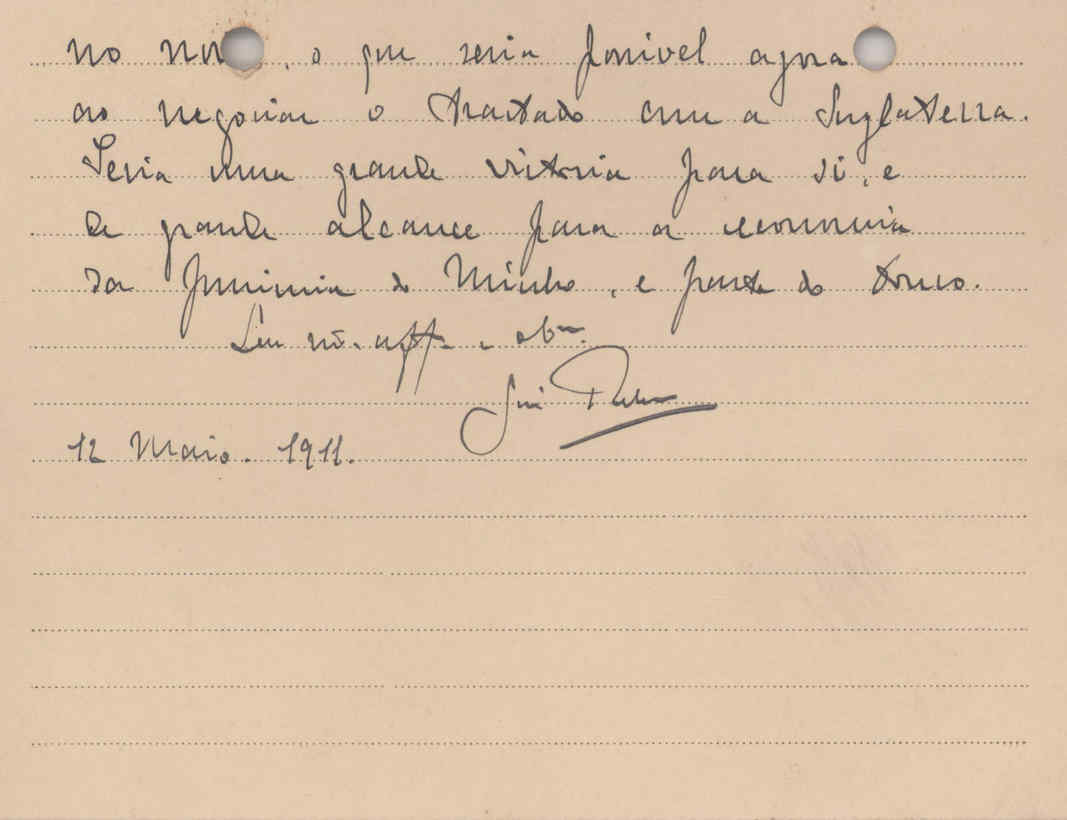 no , o que seria possivel agora
ao negociar o tractado com a Inglaterra.
Seria uma grande victoria para si, e
de grande alcance para a economia
da provincia do Minho, e parte do Douro.
Seu m.to aff. e ob.mo
José
12 Maio. 1911.